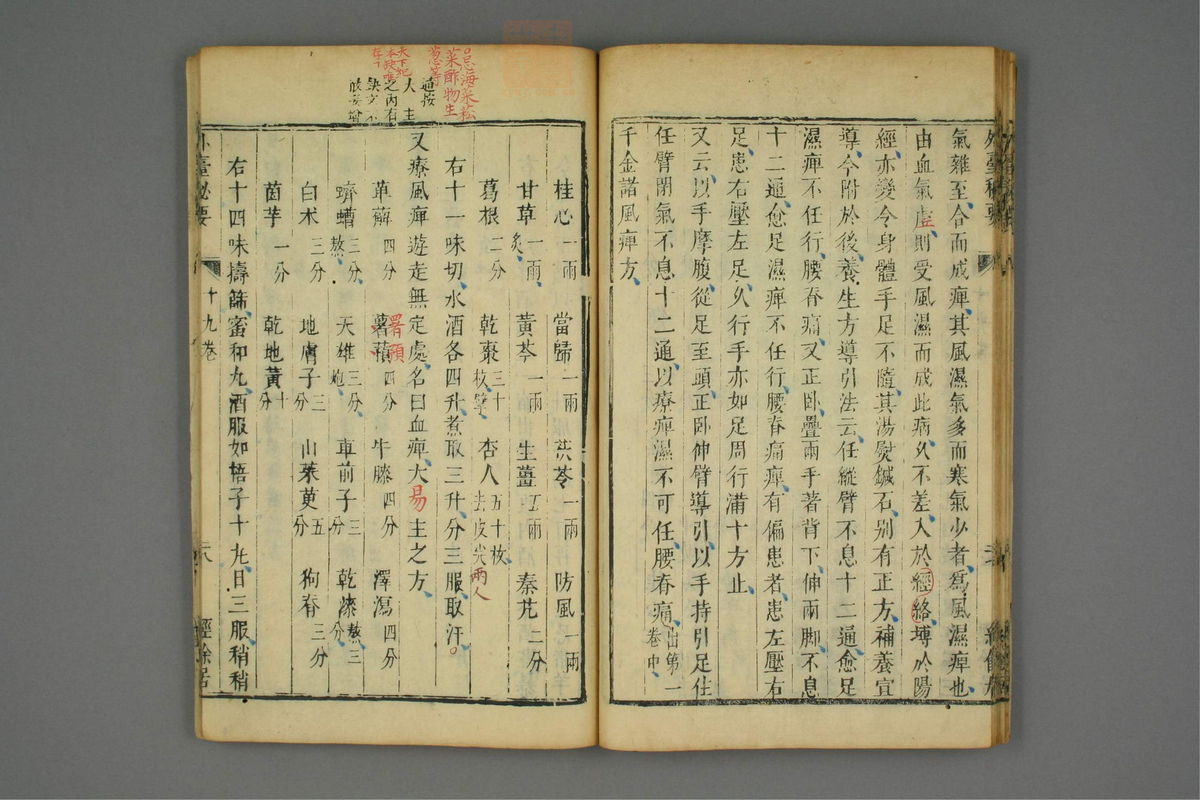 氣雜至合而成痺其風濕氣多而寒氣少者爲風濕痺也
由血氣虛則受風濕而成此病久不差入於經絡搏於陽
經亦變令身體手足不隨其湯熨鍼石別有正方補養宣
導今附於後養生方導引法云任縱臂不息十二通愈足
濕痺不任行腰脊痛又正卧疊兩手著背下伸兩脚不息
十二通愈足濕痺不任行腰脊痛痺有偏患者患左壓右
足患右壓左足久行手亦如足周行滿十方止
又云以手摩腹從足至頭正卧伸臂導引以手持引足住
任臂閉氣不息十二通以療痺濕不可任腰脊痛出第一卷中
千金諸風痺方
桂心一兩 當歸一兩 茯苓一兩 防風一兩
甘草一兩炙 黃芩一兩 生薑五兩 秦艽二分
葛根二分 乾棗三十枚擘 杏人五十枚去皮尖兩人
右十一味切水酒各四升煮取三升分三服取汗
又療風痺遊走無定處名曰血痺大易主之方
萆薢四分 薯蕷四分 牛膝四分 澤瀉四分
署預
蠐螬三分熬 天雄三分炮 車前子三分 乾漆三分熬
白朮三分 地膚子三分 山茱萸五分 狗脊三分
茵芋一分 乾地黃十分
右十四味擣篩蜜和丸酒服如梧子十丸日三服稍稍
外臺秘要 十九卷 經餘居
忌海菜菘
菜酢物生
葱等